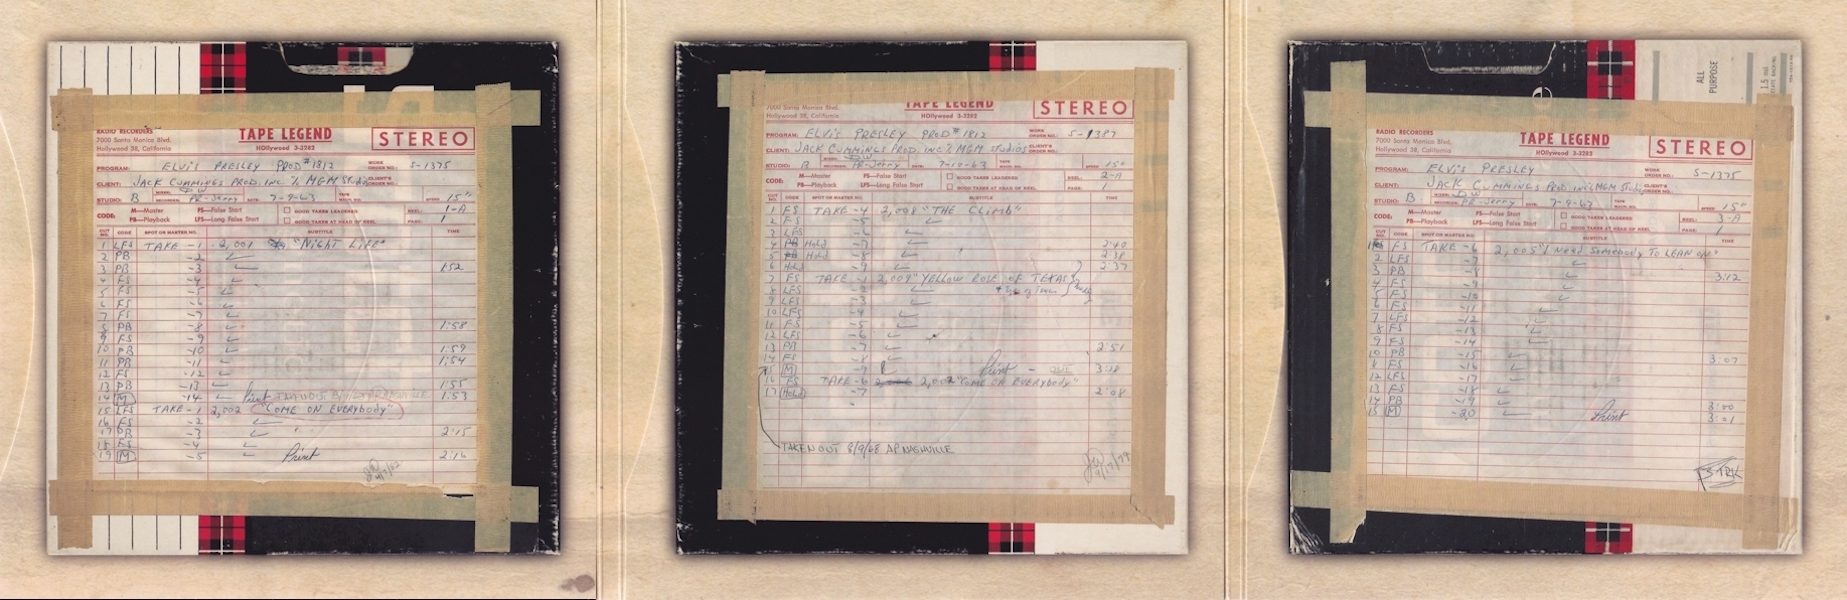 RADIO RECORDERS
7000 Santa Monica Blvd.
Hollywood 38, California
TAPE LEGEND
HOllywood 3-3282
STEREO
PROGRAM: ELVIS PRESLEY PROD #1812
WORK ORDER NO.: S-1375
CLIENT: JACK CUMMINGS PROD. INC. % MGM
CLIENT'S ORDER NO.:
STUDIO: B
DATE: 7-9-63
15"
CODE: M—Master FS—False Start
PB—Playback LFS—Long False Start
GOOD TAKES LEADERED
GOOD TAKES AT HEAD OF REEL
REEL: 1-A
PAGE: 1
CUT NO. CODE SPOT OR MASTER NO. SUBTITLE TIME
1 LFS TAKE -1 2,001 "NIGHT LIFE"
2 PB -2
3 PB -3 1:52
4 FS -4
5 FS -5
6 FS -6
7 FS -7
8 PB -8 1:58
9 FS -9
10 PB -10 1:59
11 PB -11 1:54
12 FS -12
13 PB -13 1:55
14 M -14 Print 1:53
15 LFS TAKE -1 2,002 "COME ON EVERYBODY"
16 FS -2
17 PB -3 2:15
18 FS -4
19 M -5 Print 2:16
7000 Santa Monica Blvd.
Hollywood 38, California
TAPE LEGEND
HOllywood 3-3282
STEREO
PROGRAM: ELVIS PRESLEY PROD #1812
WORK ORDER NO.: S-1387
CLIENT: JACK CUMMINGS PROD. INC % MGM STUDIOS
CLIENT'S ORDER NO.:
STUDIO: B
DATE: 7-10-63
SPEED 15"
CODE: M—Master FS—False Start
PB—Playback LFS—Long False Start
GOOD TAKES LEADERED
GOOD TAKES AT HEAD OF REEL
REEL: 2-A
PAGE: 1
CUT NO. CODE SPOT OR MASTER NO. SUBTITLE TIME
1 FS TAKE -4 2,008 "THE CLIMB"
2 FS -5
3 LFS -6
4 PB Hold -7 2:40
5 PB Hold -8 2:38
6 Hold -9 2:37
7 FS TAKE -1 2,009 "YELLOW ROSE OF TEXAS"
8 LFS -2
9 LFS -3
10 LFS -4
11 FS -5
12 LFS -6
13 PB -7 2:51
14 FS -8
15 M -9 Print
16 FS TAKE -6 2,002 "COME ON EVERYBODY"
17 Hold -7 2:08
TAKEN OUT 8/9/68 AP NASHVILLE
ALL PURPOSE
1.5 mil
RADIO RECORDERS
7000 Santa Monica Blvd.
Hollywood 38, California
TAPE LEGEND
HOllywood 3-3282
STEREO
PROGRAM: ELVIS PRESLEY
WORK ORDER NO.: S-1375
CLIENT: JACK CUMMINGS PROD. INC % MGM
CLIENT'S ORDER NO.:
STUDIO: B
DATE: 7-9-63
SPEED 15"
CODE: M—Master FS—False Start
PB—Playback LFS—Long False Start
GOOD TAKES LEADERED
GOOD TAKES AT HEAD OF REEL
REEL: 3-A
PAGE: 1
CODE SPOT OR MASTER NO. SUBTITLE TIME
FS TAKE -6 2,005 "I NEED SOMEBODY TO LEAN ON"
2 LFS -7
3 PB -8 3:12
4 FS -9
5 FS -10
6 FS -11
7 LFS -12
8 FS -13
9 FS -14
10 PB -15 3:07
11 FS -16
12 LFS -17
13 FS -18
14 PB -19 3:00
15 M -20 Print 3:01
3 TRK